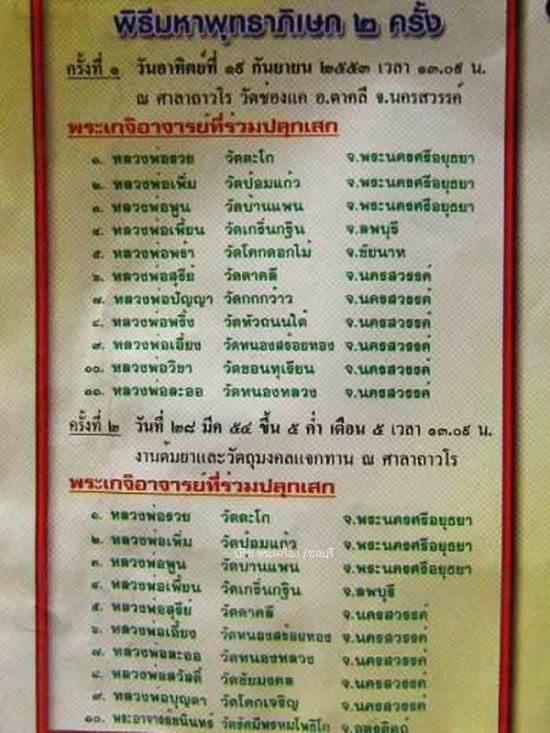 พิธีมหาพุทธาภิเษก ๒ ครั้ง
ครั้งที่ ๑ วันอาทิตย์ที่ ๑๙ กันยายน ๒๕๕๓ เวลา ๑๓.๐๙ น.
ณ ศาลาถาวโร วัดช่องแค อ.ตาคลี จ.นครสวรรค์
พระเกจิอาจารย์ที่ร่วมปลุกเสก
๑. หลวงพ่อรวย วัดตะโก จ.พระนครศรีอยุธยา
๒. หลวงพ่อเพิ่ม วัดป้อมแก้ว จ.พระนครศรีอยุธยา
๓. หลวงพ่อพูน วัดบ้านแพน จ.พระนครศรีอยุธยา
๔. หลวงพ่อเพี้ยน วัดเกริ่นกฐิน จ.ลพบุรี
๕. หลวงพ่อพร้า วัดโคกดอกไม้ จ.ชัยนาท
๖. หลวงพ่อสุรีย์ วัดตาคลี จ.นครสวรรค์
๗. หลวงพ่อปัญญา วัดกกกว้าว จ.นครสวรรค์
๘. หลวงพ่อพริ้ง วัดหัวถนนใต้ จ.นครสวรรค์
๙. หลวงพ่อเอี้ยง วัดหนองสร้อยทอง จ.นครสวรรค์
๑๐. หลวงพ่อวิชา วัดขอนทุเรียน จ.นครสวรรค์
๑๑. หลวงพ่อละออ วัดหนองหลวง จ.นครสวรรค์
ครั้งที่ ๒ วันที่ ๒๘ มีค ๕๔ ขึ้น ๕ ค่ำ เดือน ๕ เวลา ๑๓.๐๙ น.
งานต้มยาและวัตถุมงคลแจกทาน ณ ศาลาถาวโร
พระเกจิอาจารย์ที่ร่วมปลุกเสก
๑. หลวงพ่อรวย วัดตะโก จ.พระนครศรีอยุธยา
๒. หลวงพ่อเพิ่ม วัดป้อมแก้ว จ.พระนครศรีอยุธยา
๓. หลวงพ่อพูน วัดบ้านแพน จ.พระนครศรีอยุธยา
๔. หลวงพ่อเพี้ยน วัดเกริ่นกฐิน จ.ลพบุรี
๕. หลวงพ่อสุรีย์ วัดตาคลี จ.นครสวรรค์
๖. หลวงพ่อเอี้ยง วัดหนองสร้อยทอง จ.นครสวรรค์
๗. หลวงพ่อละออ วัดหนองหลวง จ.นครสวรรค์
๘. หลวงพ่อสวัสดิ์ วัดชัยมงคล จ.นครสวรรค์
๙. หลวงพ่อบุญตา วัดโคกเจริญ จ.นครสวรรค์
๑๐. พระอาจารย์ชนินทร์ วัดรัศมีพรหมโพธิโก จ.อุตรดิตถ์
พระเครื่อง /ชลบุรี